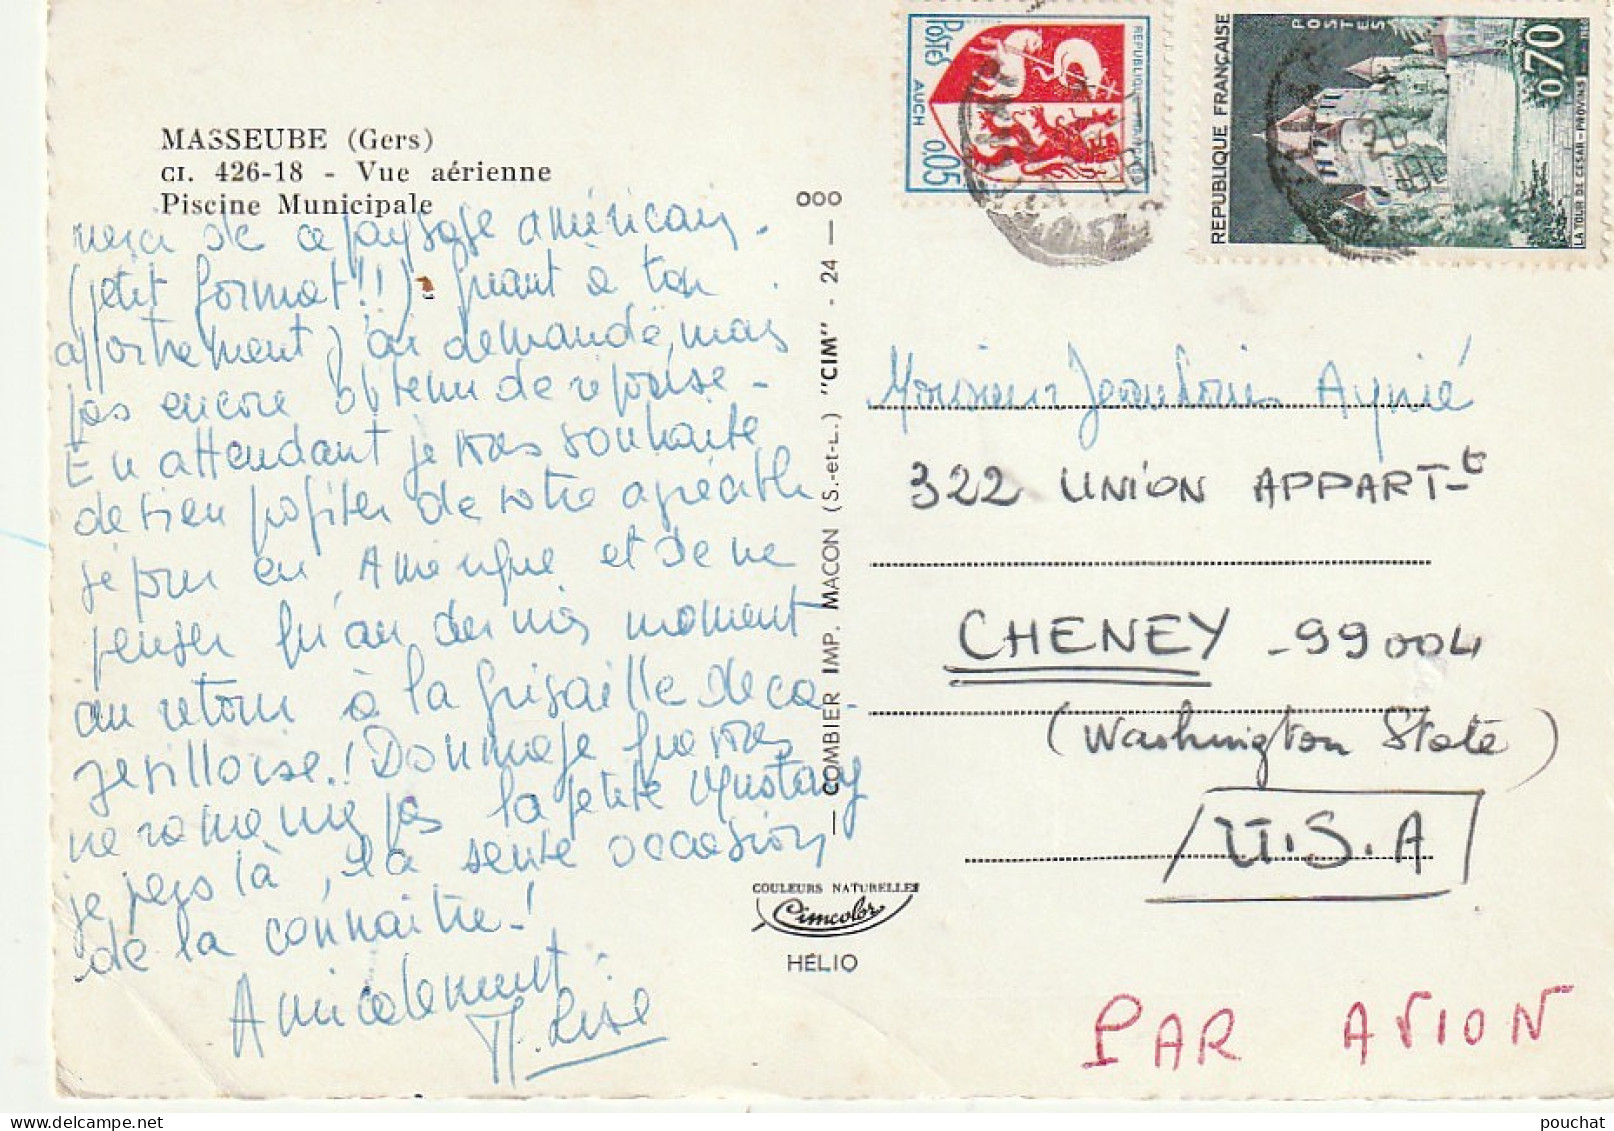 MASSEUBE (Gers)
CI. 426-18 - Vue aérienne
Piscine Municipale
merci de ce paysage américain.
(petit format!!). Quant à ton
appartement j'ai demandé, mais
pas encore obtenu de réponse -
En attendant je vous souhaite
de bien profiter de votre agréable
séjour en Amérique et de ne
penser qu'au dernier moment
au retour à la grisaille de ca-
! Dommage que vous
ne rameniez pas la petite Mustang
je perds là, la seule occasion
de la connaître!
Amicalement.
M. Lise
COMBIER IMP. MACON (S.-et-L.) "CIM" - 24 -
COULEURS NATURELLES
Cimcolor
HÉLIO
POSTES
REPUBLIQUE FRANÇAISE
AUCH
0,05
REPUBLIQUE FRANÇAISE
POSTES
0,70
LA TOUR DE CÉSAR - PROVINS
Monsieur Jean Louis Aynié
322 UNION APPART-t
CHENEY - 99004
(Washington State)
U.S.A
PAR AVION
pouchat